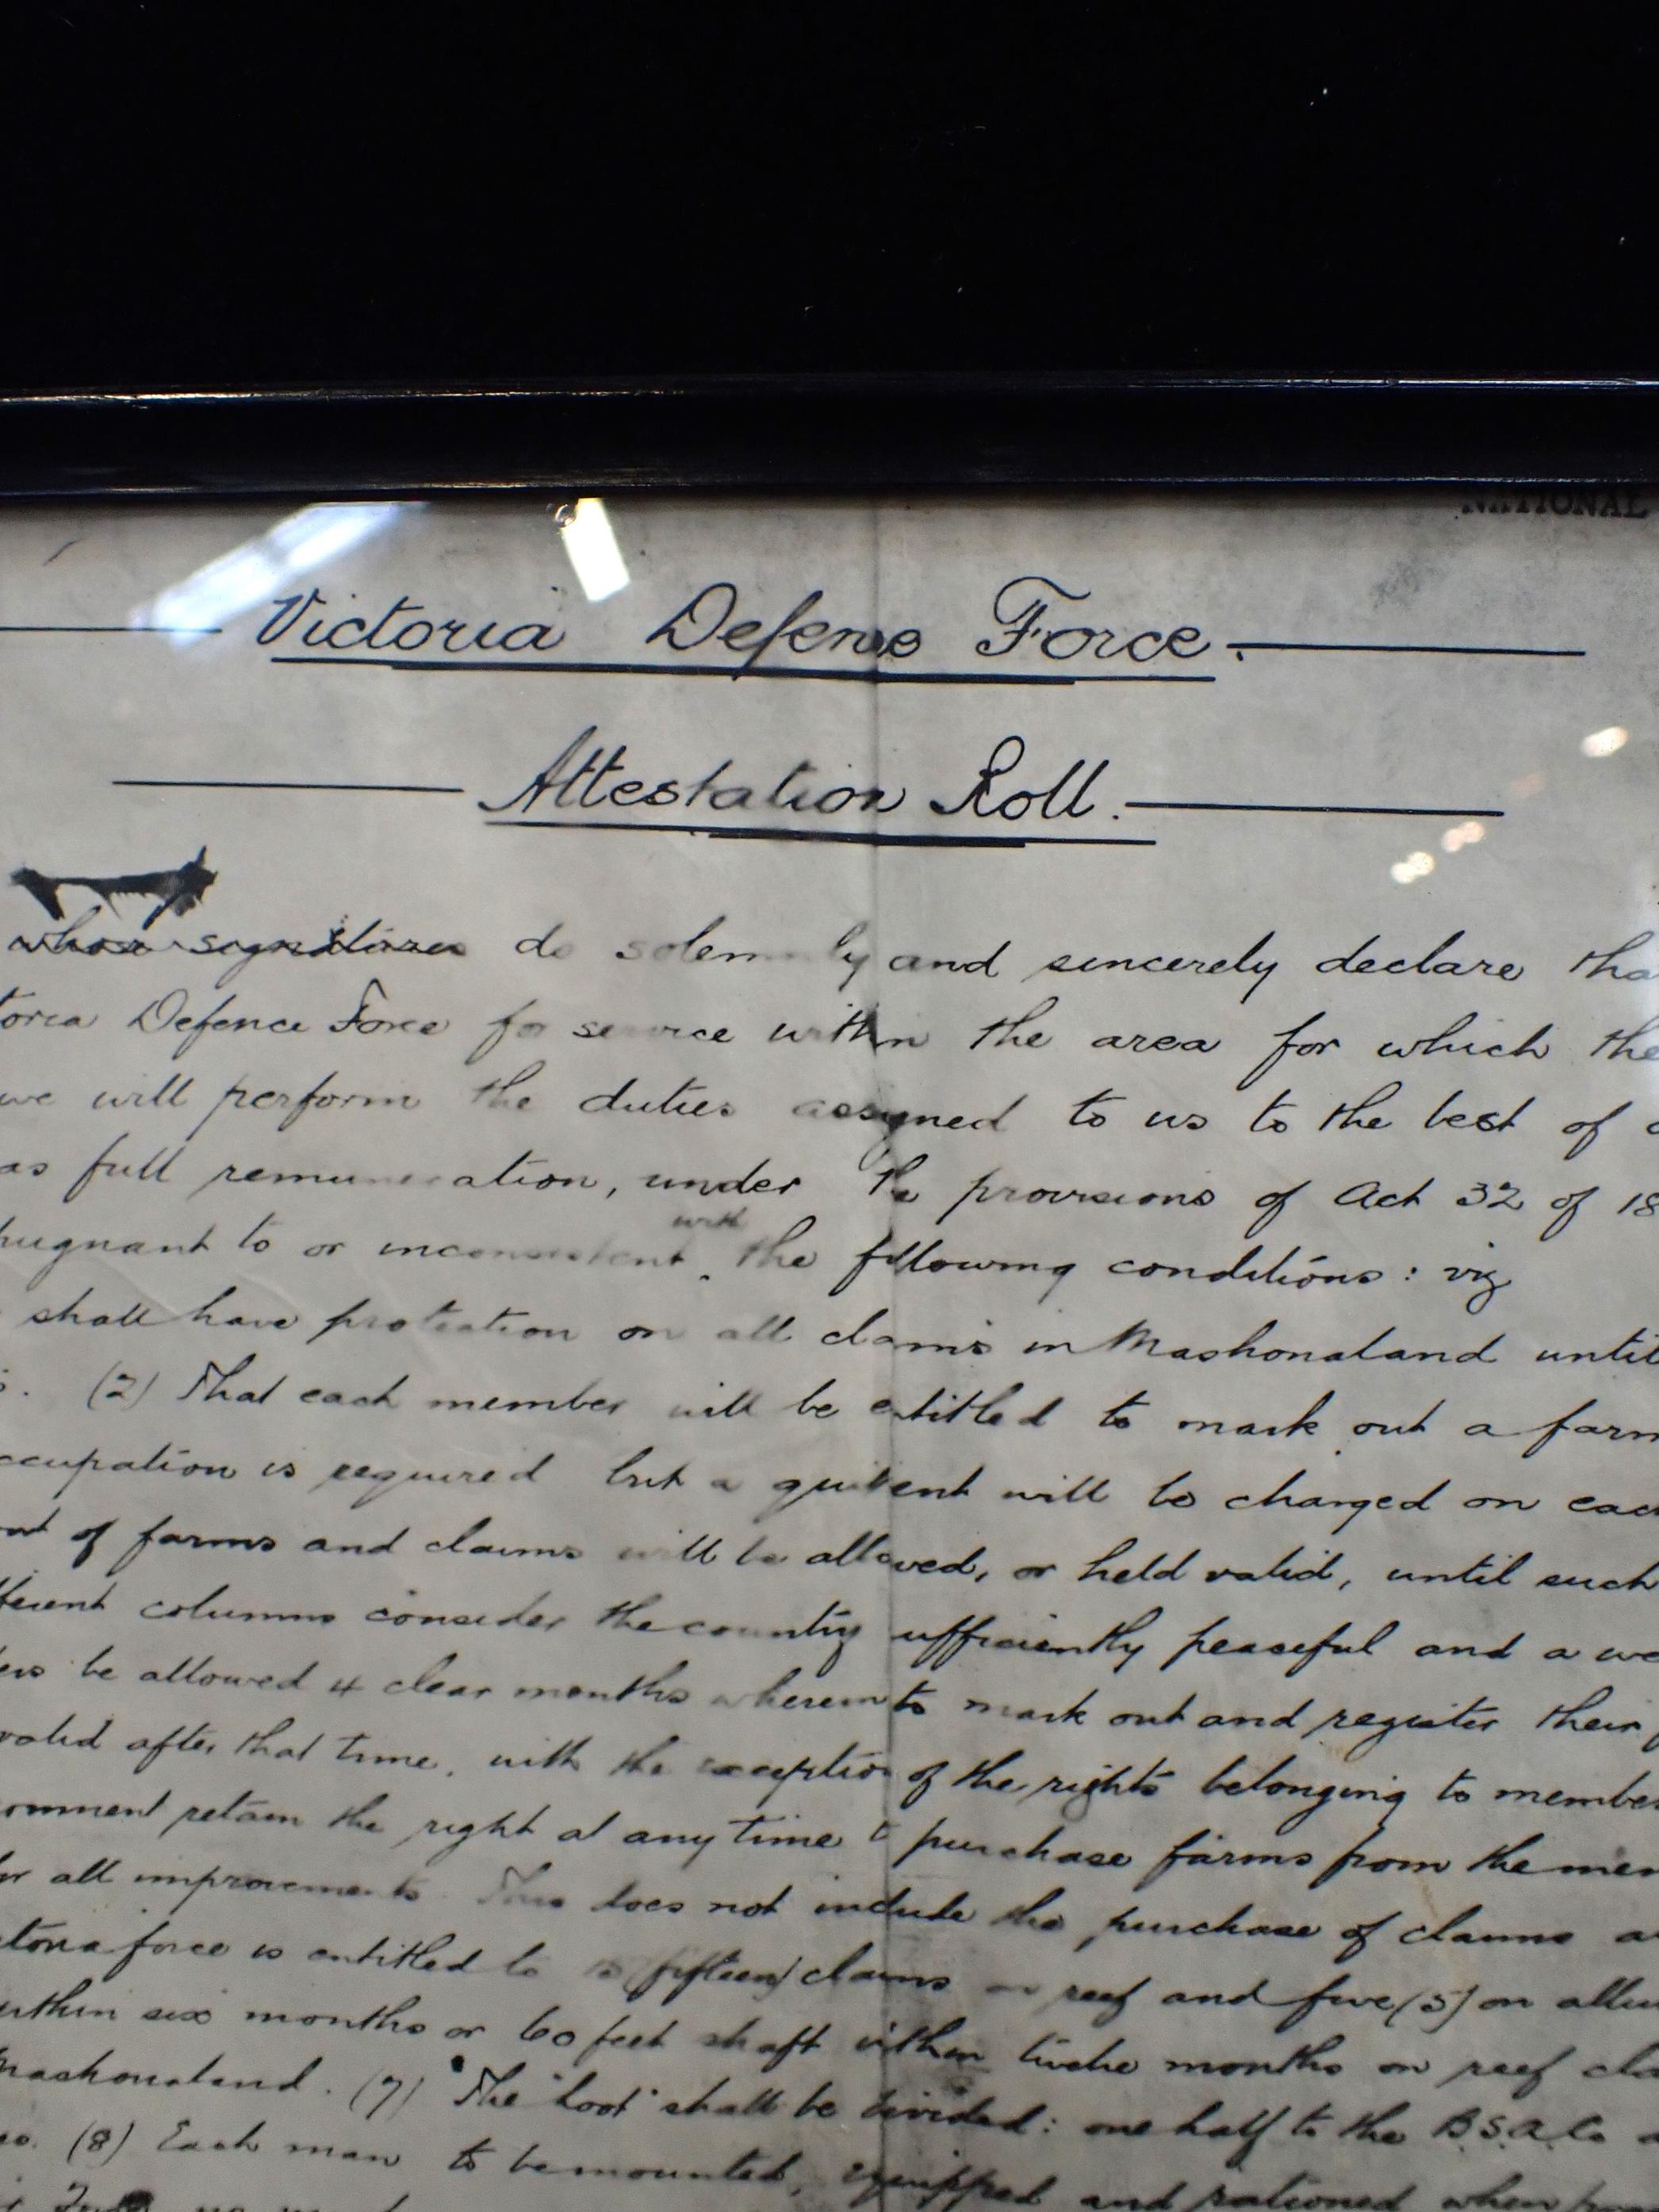 NATIONAL
Victoria Defense Force.
Attestation Roll.
whose signatures do solemnly and sincerely declare tha
toria Defence Force for service within the area for which the
we will perform the duties assigned to us to the best of o
as full remuneration, under the provisions of Act 32 of 18
pugnant to or inconsistent with the following conditions: viz
shall have protection on all claims in Mashonaland until
s. (2) That each member will be entitled to mark out a farm
ccupation is required but a quitrent will be charged on eac
of farms and claims will be allowed, or held valid, until such
fferent columns consider the country sufficiently peaceful and a we
be allowed 4 clear months wherein to mark out and register their f
valid after that time, with the exception of the rights belonging to member
ernment retain the right at any time to purchase farms from the mem
for all improvements. This does not include the purchase of claims a
ctoria force is entitled to 15 (fifteen) claims on reef and five (5) on alluv
within six months or 60 feet shaft within twelve months on reef cla
Mashonaland. (7) The "loot" shall be divided: one half to the B.S.A.Co a
(8) Each man to be mounted, equipped and rationed when